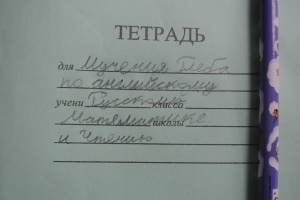 ТЕТРАДЬ
для Мучения Глеба
по английскому
учени Русский класса
Матяматике школы
и Чтению